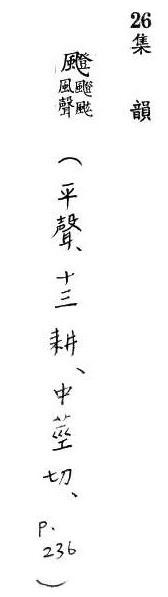 26 集韻
風聲
(平聲、十三耕、中莖切、
p.236)